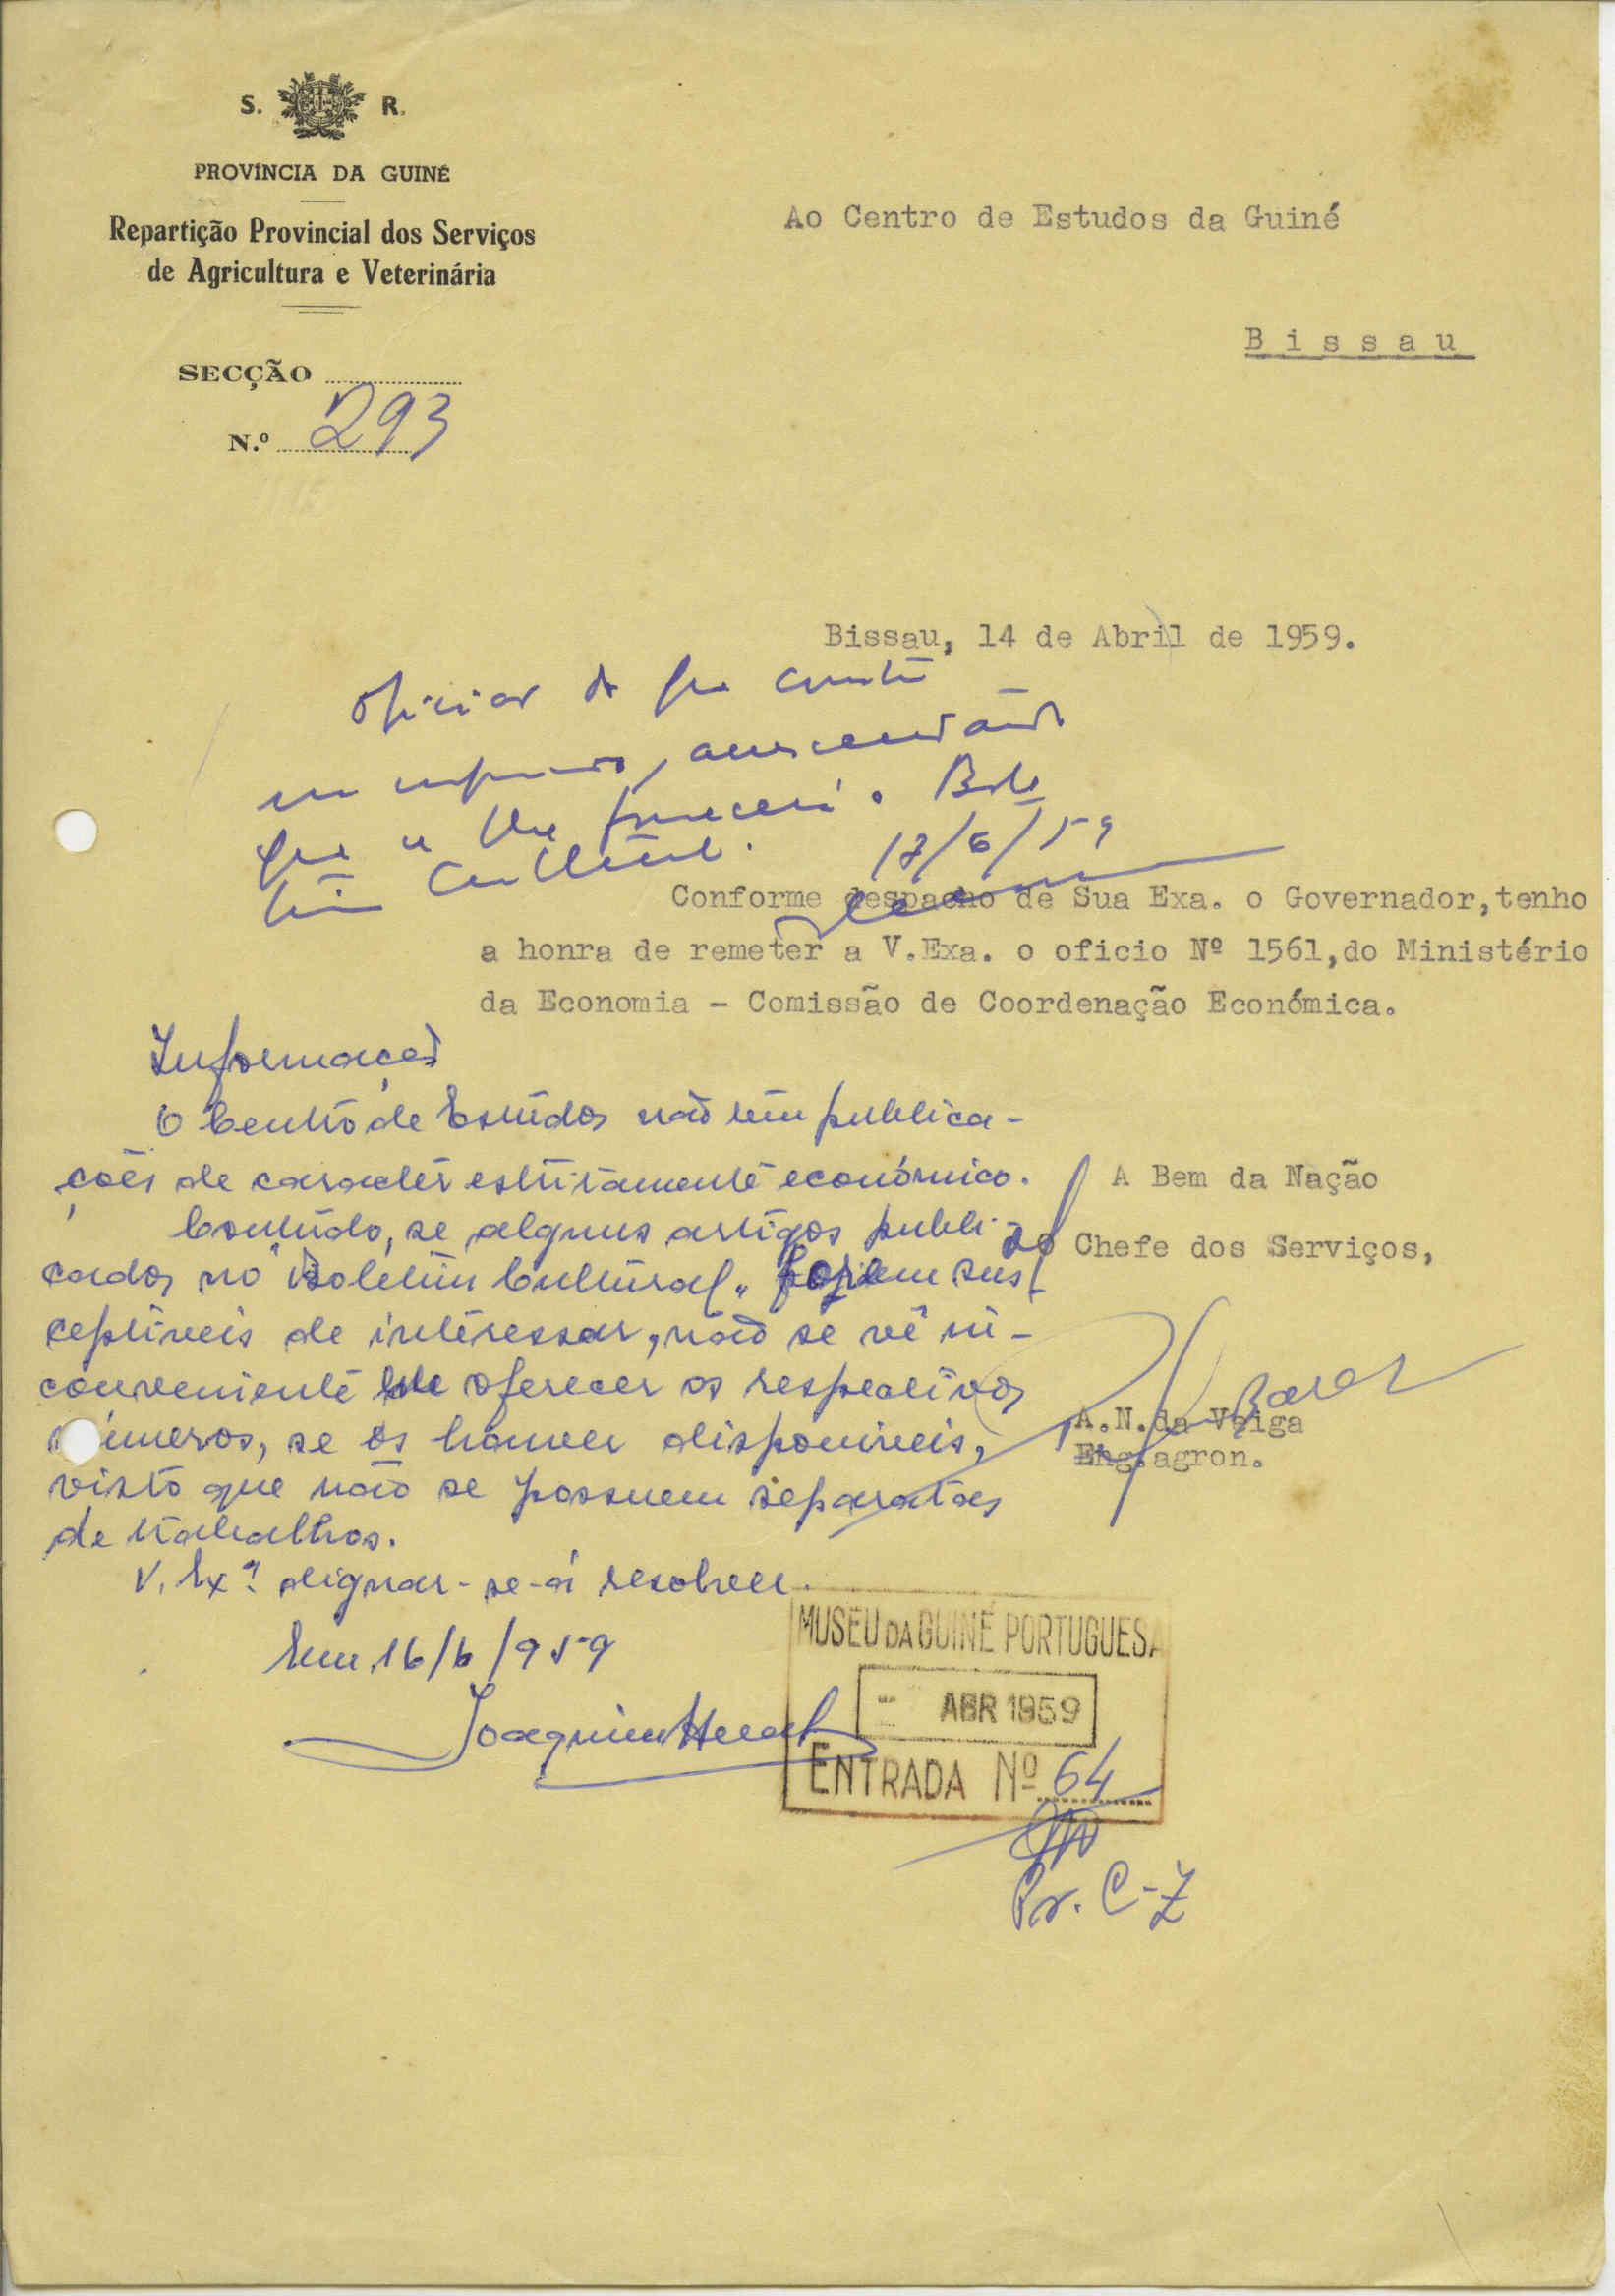 S. R.
PROVÍNCIA DA GUINÉ
Repartição Provincial dos Serviços
de Agricultura e Veterinária
SECÇÃO
N.º 293
Ao Centro de Estudos da Guiné
Bissau
Bissau, 14 de Abril de 1959.
Oficiar
acrescentando
que se lhe fornecerá o Bole
tim Cultural.
17/6/59
Conforme despacho de Sua Exa. o Governador,tenho
a honra de remeter a V.Exa. o oficio Nº 1561,do Ministério
da Economia - Comissão de Coordenação Económica.
Informação
O Centro de Estudos não tem publica-
ções de caracter estritamente económico.
Contudo, se alguns artigos publi-
cados no "Boletim Cultural" forem sus
ceptíveis de interessar, não se vê in-
conveniente de oferecer os respectivos
números, se os houver disponíveis,
visto que não se possuem separatas
de trabalhos.
V. Exª dignar-se-á resolver.
Em 16/6/959
Joaquim
A Bem da Nação
Chefe dos Serviços,
A.N.da Veiga
Eng.agron.
MUSEU DA GUINÉ PORTUGUESA
ABR 1959
ENTRADA Nº 64
Pr. C-Z